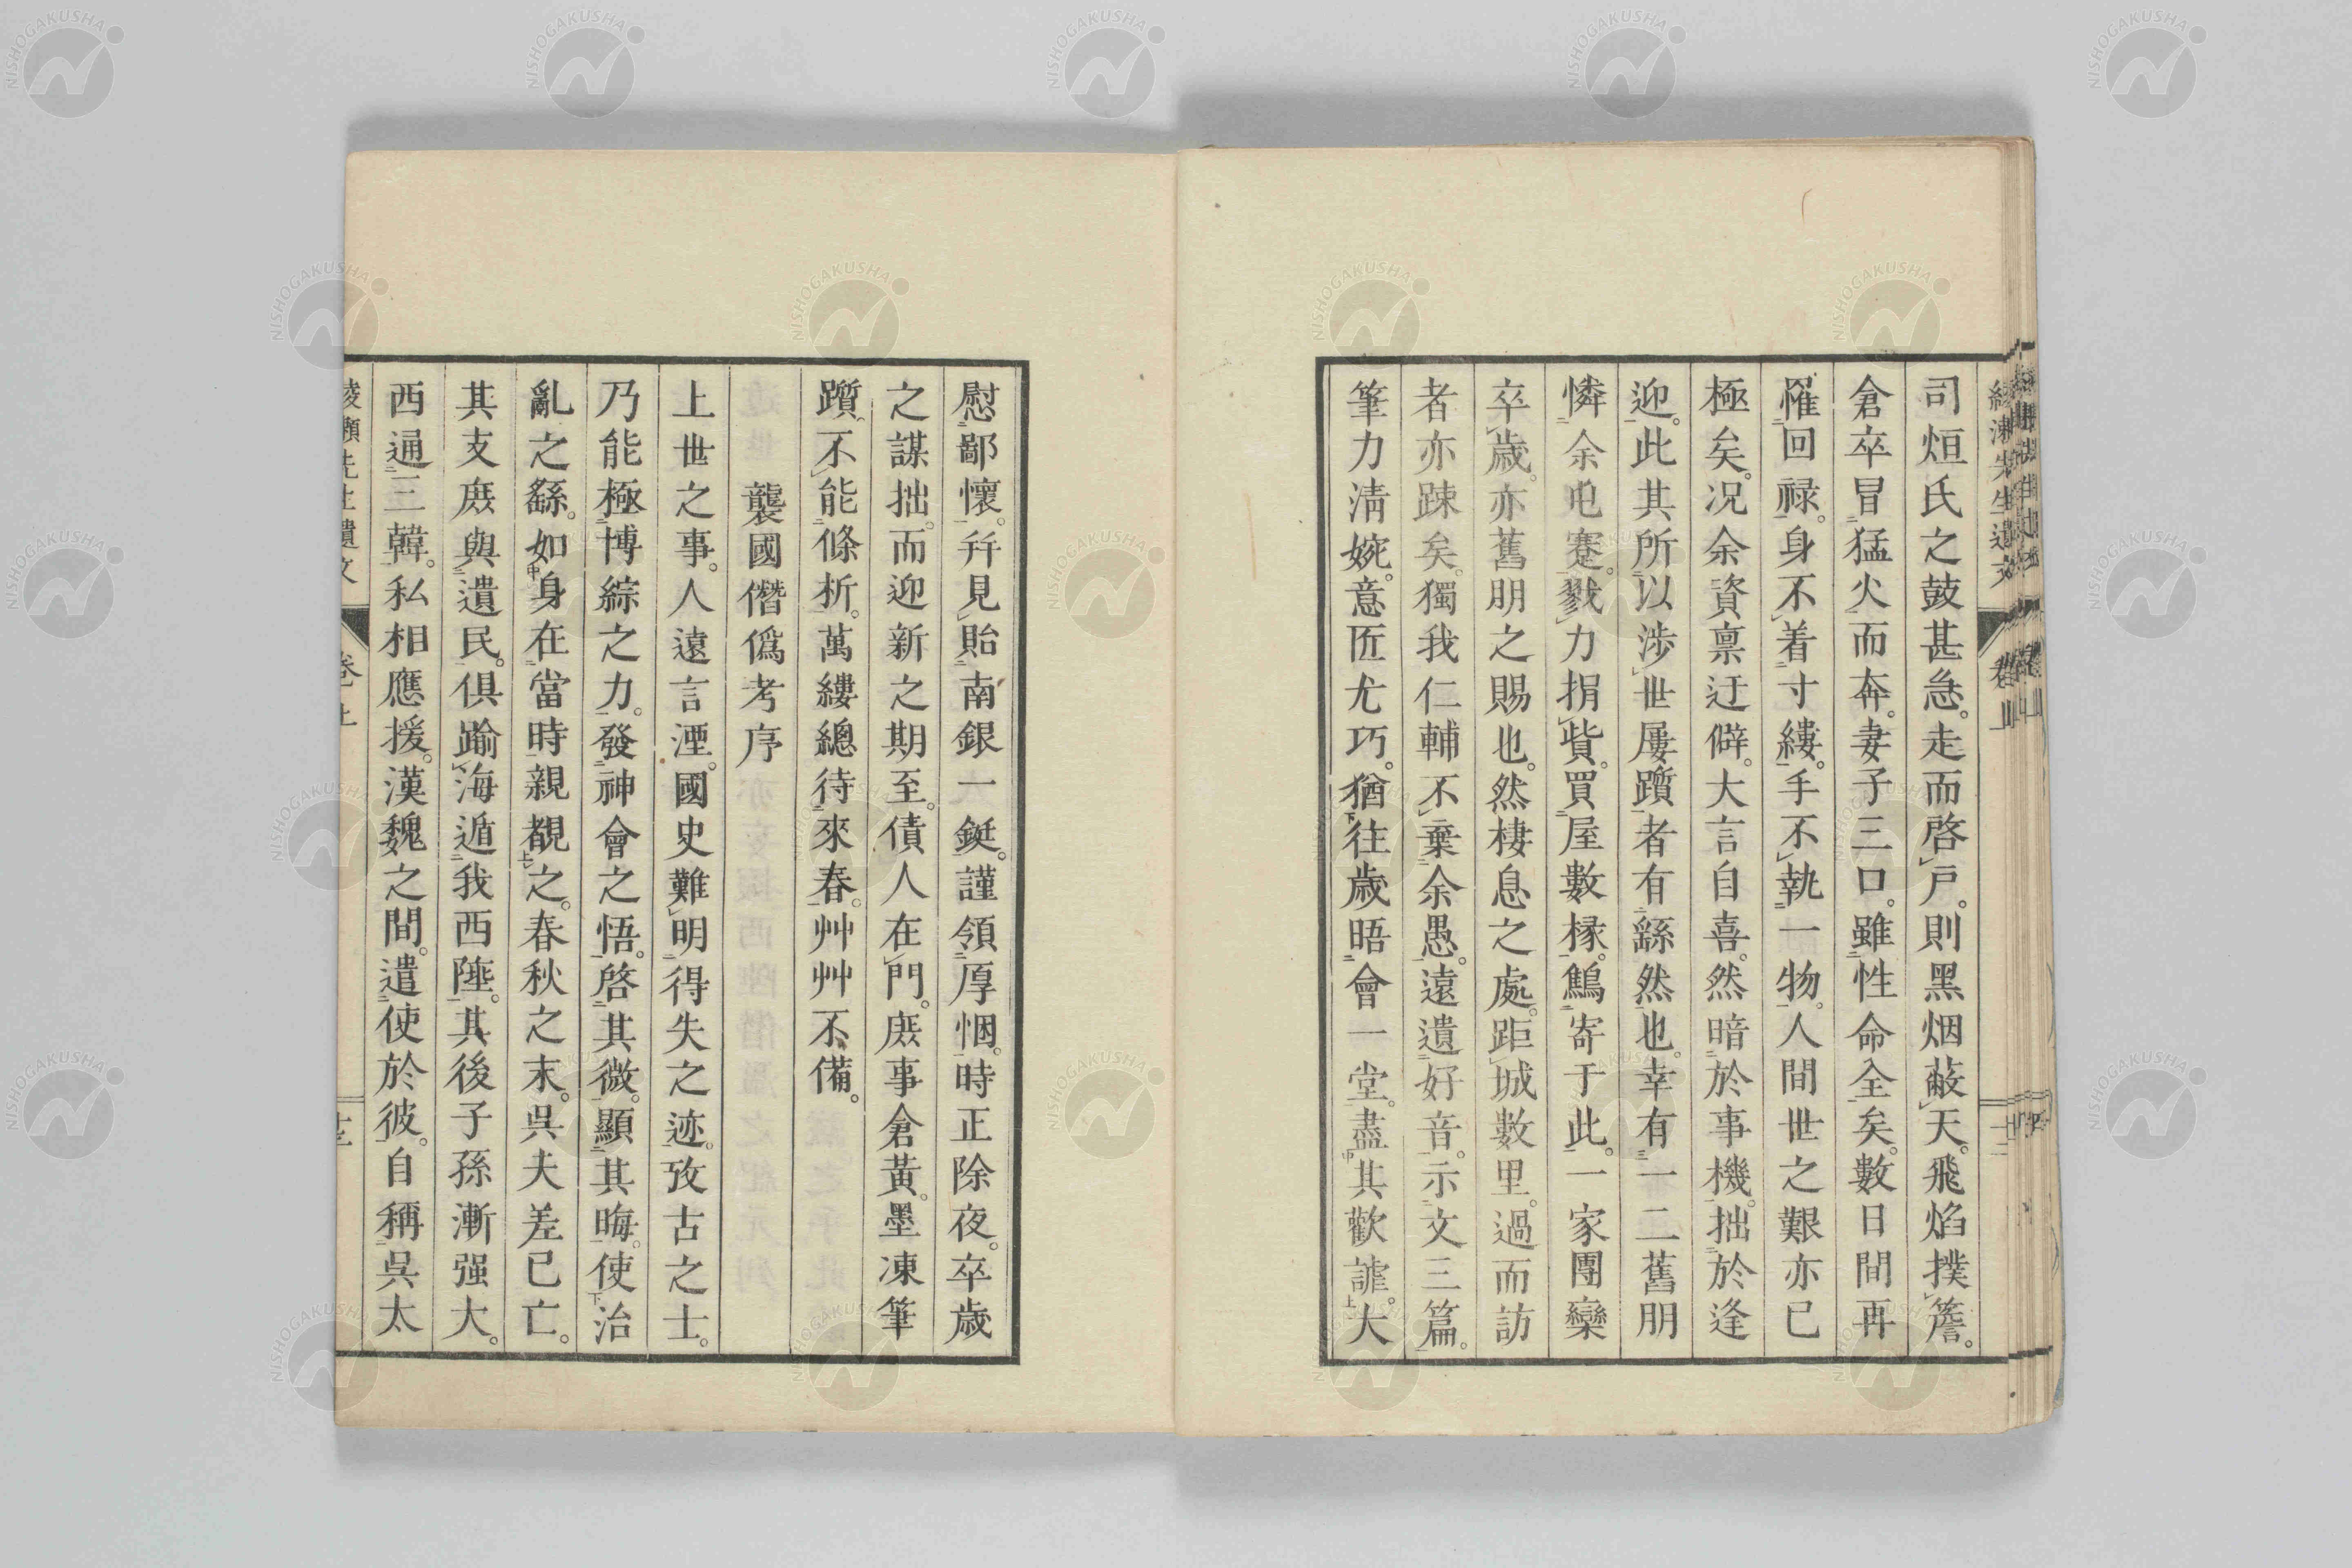 司烜氏之鼓甚急。走而啓戸。則黑烟蔽天。飛焰撲簷。
倉卒冒猛火而奔。妻子三口。雖性命全矣。數日間再
罹回禄。身不着寸縷。手不執一物。人間世之艱亦已
極矣。况余資禀迂僻。大言自喜。然暗於事機。拙於逢
迎。此其所以渉世屢躓者有繇然也。幸有一二舊朋
憐余屯蹇。戮力捐貲。買屋數椽。鷦寄于此。一家團欒
卒歳。亦舊朋之賜也。然棲息之處。距城數里。過而訪
者亦踈矣。獨我仁輔不棄余愚。遠遺好音。示文三篇。
筆力淸婉。意匠尤巧。猶往歳晤會一堂。盡其歡謔。大
慰鄙懷。幷見貽南銀一鋌。謹領厚悃。時正除夜。卒歳
之謀拙。而迎新之期至。債人在門。庶事倉黃。墨凍筆
躓不能條析。萬縷總待來春。艸艸不備。
襲國僭僞考序
上世之事。人遠言湮。國史難明得失之迹。攷古之士。
乃能極博綜之力。發神會之悟。啓其微。顯其晦。使治
亂之繇。如身在當時親覩之。春秋之末。吳夫差已亡。
其支庶與遺民。俱踰海遁我西陲。其後子孫漸强大。
西通三韓。私相應援。漢魏之間。遣使於彼。自稱吳太
NISHOGAKUSHA